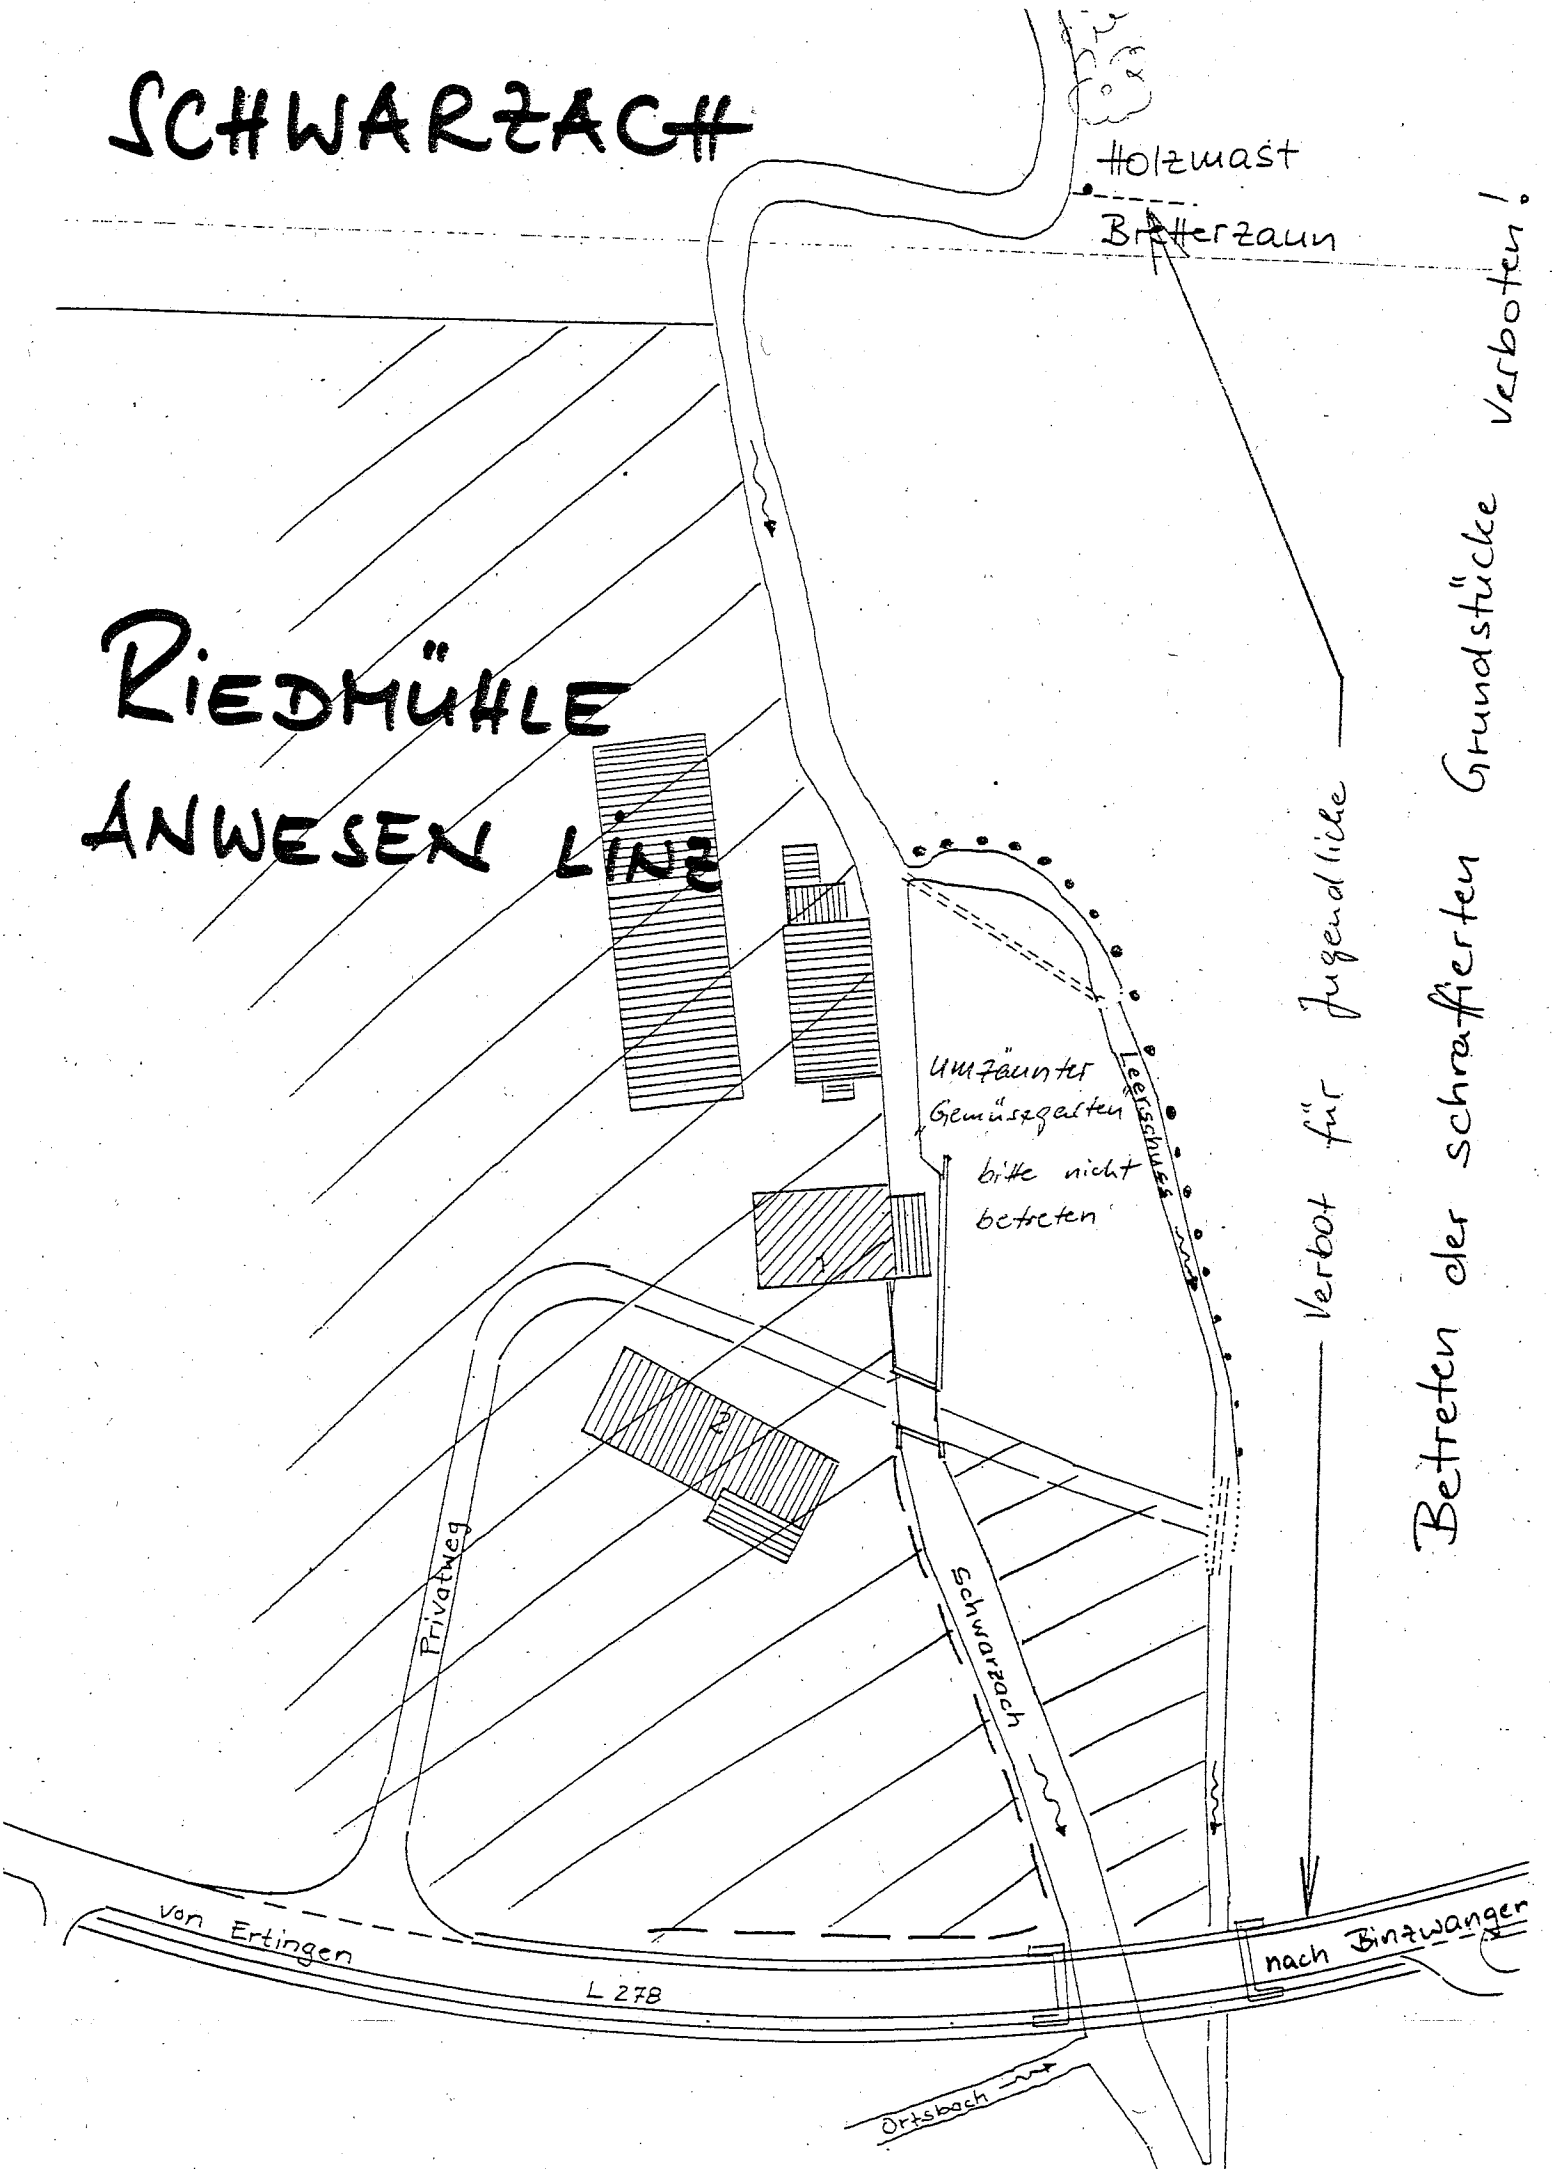 SCHWARZACH
Holzmast
Bretterzaun
RIEDMÜHLE
ANWESEN LINZ
Umzäunter
„Gemüsegarten“
bitte nicht
betreten
Leerschuss
1
2
Privatweg
Schwarzach
Verbot für Jugendliche
Betreten der schraffierten Grundstücke verboten!
von Ertingen
L 278
nach Binzwangen
Ortsbach